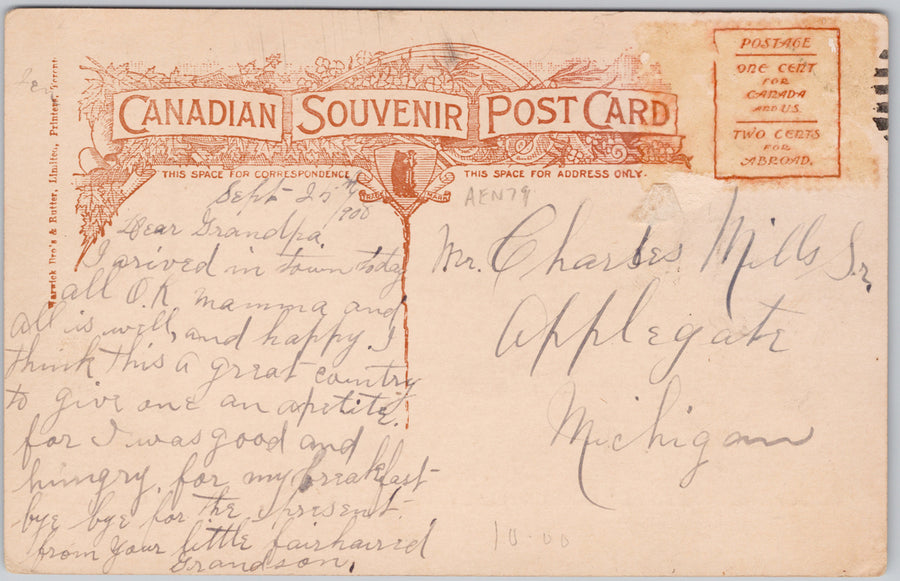 CANADIAN SOUVENIR POST CARD
THIS SPACE FOR CORRESPONDENCE
THIS SPACE FOR ADDRESS ONLY.
POSTAGE
ONE CENT
FOR
CANADA
AND U.S.
TWO CENTS
FOR
ABROAD.
Warwick Bro's & Rutter, Limited, Printers, Toronto
TRADE MARK
AEN79
Sept 25th
Dear Grandpa
I arived in town today
all O.K. mamma and
all is well, and happy. I
think this a great country
to give one an apetite.
for I was good and
hungry, for my breakfast
bye bye for the present.
from your little fairhaired
Grandson.
Mr. Charles Mills Sr,
Applegate
Michigan
10.00